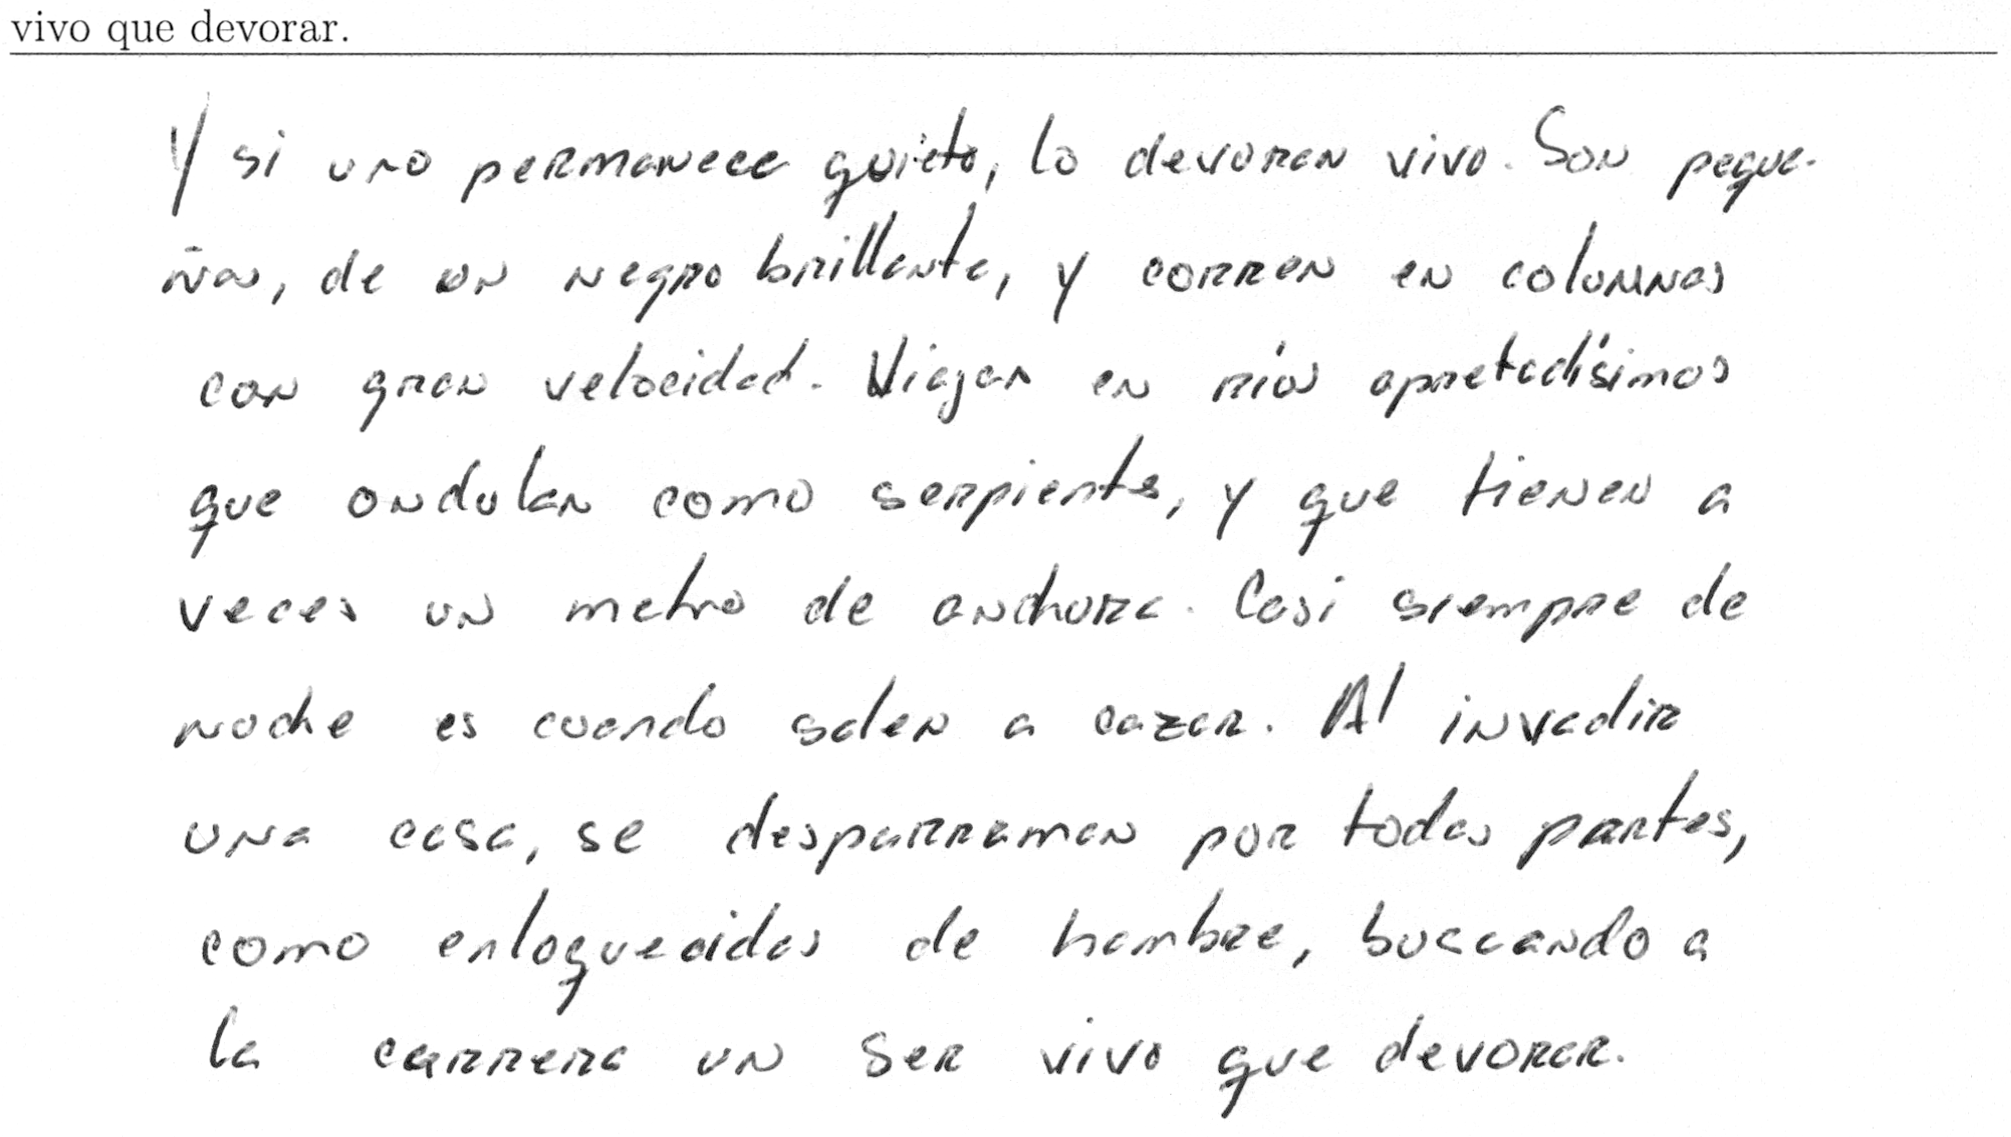 vivo que devorar.
Y si uno permanece quieto, lo devoran vivo. Son peque-
ñas, de un negro brillante, y corren en columnas
con gran velocidad. Viajan en ríos apretadísimos
que ondulan como serpientes, y que tienen a
veces un metro de anchura. Casi siempre de
noche es cuando salen a cazar. Al invadir
una casa, se desparraman por todas partes,
como enloquecidas de hambre, buscando a
la carrera un ser vivo que devorar.